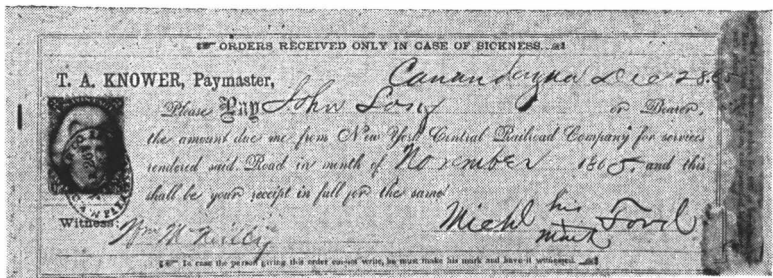 ORDERS RECEIVED ONLY IN CASE OF SICKNESS.
T. A. KNOWER, Paymaster, Canandaigua Dec 28. 65
Please Pay John Losy or Bearer,
the amount due me from New York Central Railroad Company for services
rendered said Road in month of November 1865. and this
shall be your receipt in full for the same.
Witness: Wm McNeilly Michl his mark
In case the person giving this order cannot write, he must make his mark and have it witnessed.